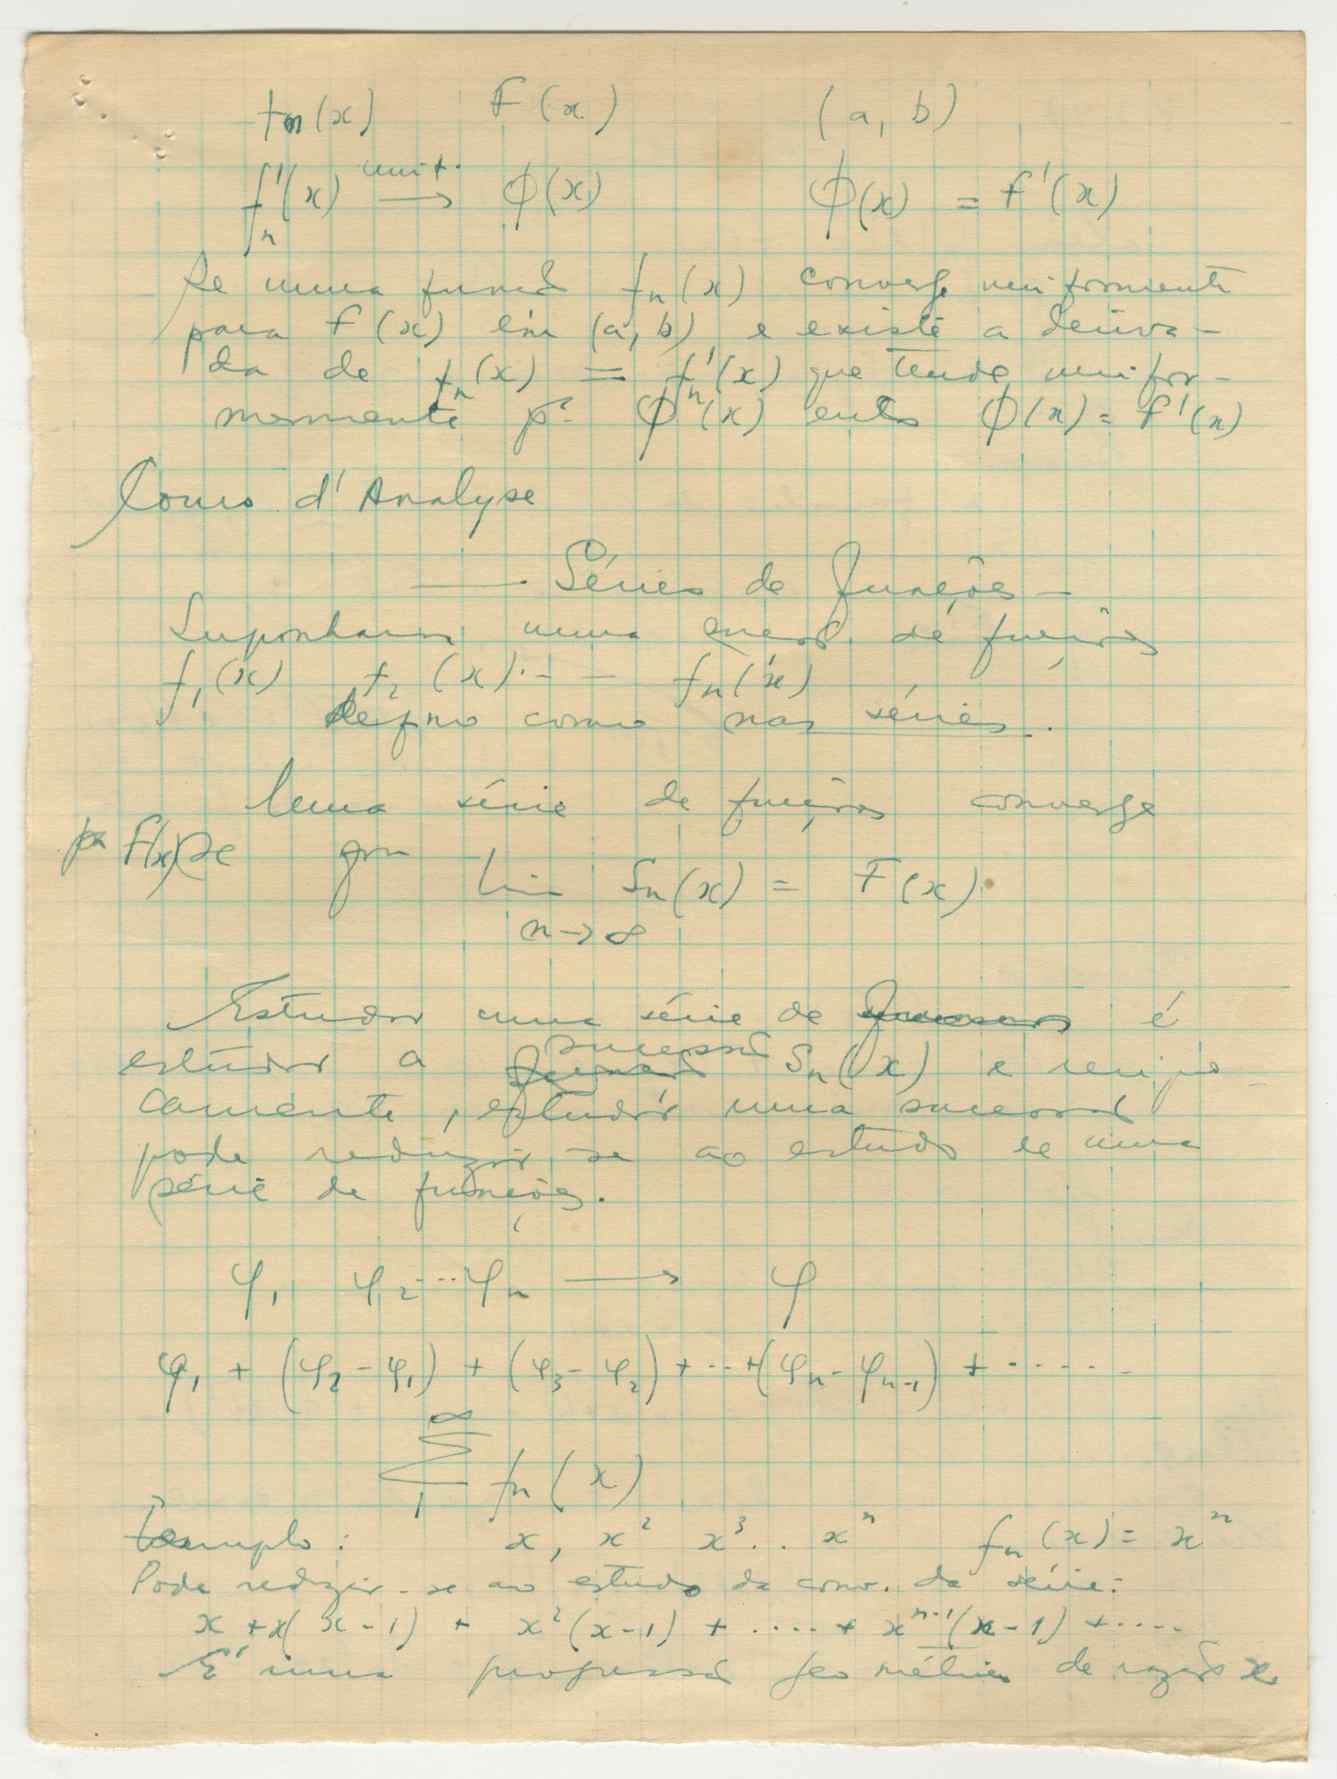 fn(x) F(x) (a, b)
f'n(x) unif. → ϕ(x) ϕ(x) = F'(x)
Se uma função fn(x) converge uniformemente
para F(x) em (a, b) e existe a deriva-
da de fn(x) = f'n(x) que tende unifor-
memente pª ϕ(x) então ϕ(x) = F'(x)
Cours d'Analyse
— Séries de Funções —
Suponhamos uma sucessão de funções
f1(x) f2(x) ·-- fn(x)
defino como nas séries.
Uma série de funções converge
pª F(x) se
lim Sn(x) = F(x)
n→∞
Estudar uma série de é
estudar a sucessão Sn(x) e recipro
camente, estudar uma sucessão
pode reduzir-se ao estudo de uma
série de funções.
φ1, φ2 ··· φn → φ
φ1 + (φ2 - φ1) + (φ3 - φ2) + ··· + (φn - φn-1) + ······
∞
Σ fn(x)
1
Exemplo: x, x² x³ .. xⁿ fn(x) = xⁿ
Pode reduzir-se ao estudo da conv. da série:
x + x(x-1) + x²(x-1) + ····· + xⁿ⁻¹(x-1) + ·····
É uma progressão geométrica de razão x